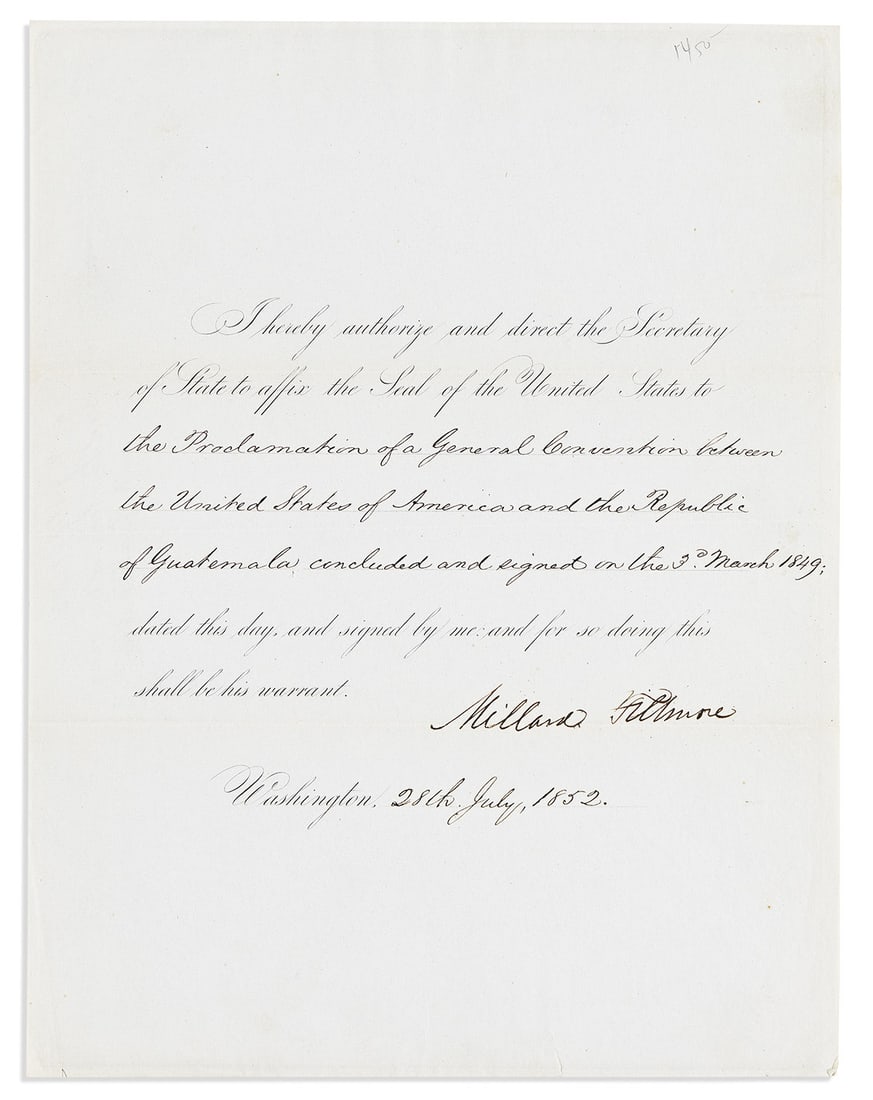 I hereby authorize and direct the Secretary
of State to affix the Seal of the United States to
the Proclamation of a General Convention between
the United States of America and the Republic
of Guatemala, concluded and signed on the 3d. March 1849;
dated this day, and signed by me: and for so doing this
shall be his warrant.
Millard Fillmore
Washington, 28th July, 1852.